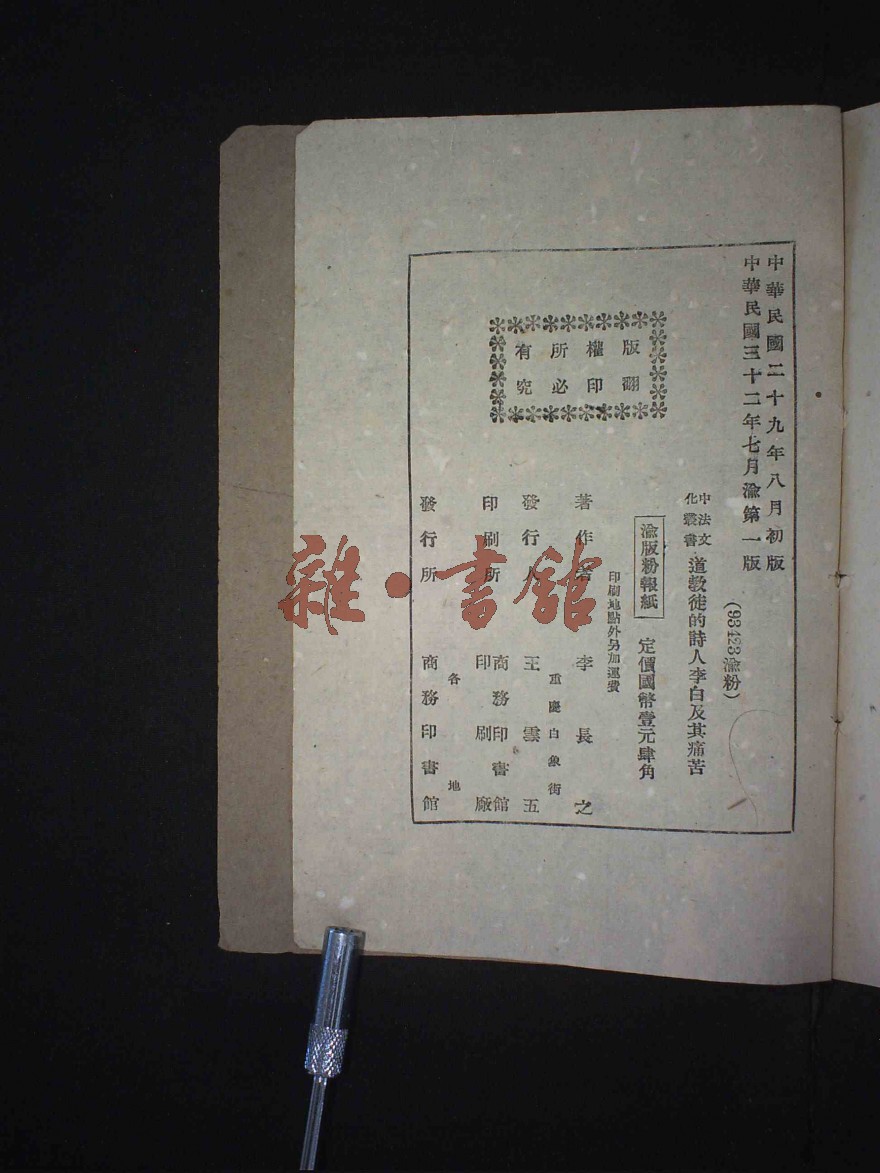 中華民國二十九年八月初版
中華民國三十二年七月渝第一版
(93423渝粉)
中法文化叢書
道教徒的詩人李白及其痛苦
渝版粉報紙
定價國幣壹元肆角
印刷地點外另加運費
版權所有
翻印必究
著作者 李長之
重慶白象街
發行人 王雲五
印刷所 商務印書館印刷廠
各地
發行所 商務印書館
雜·書館